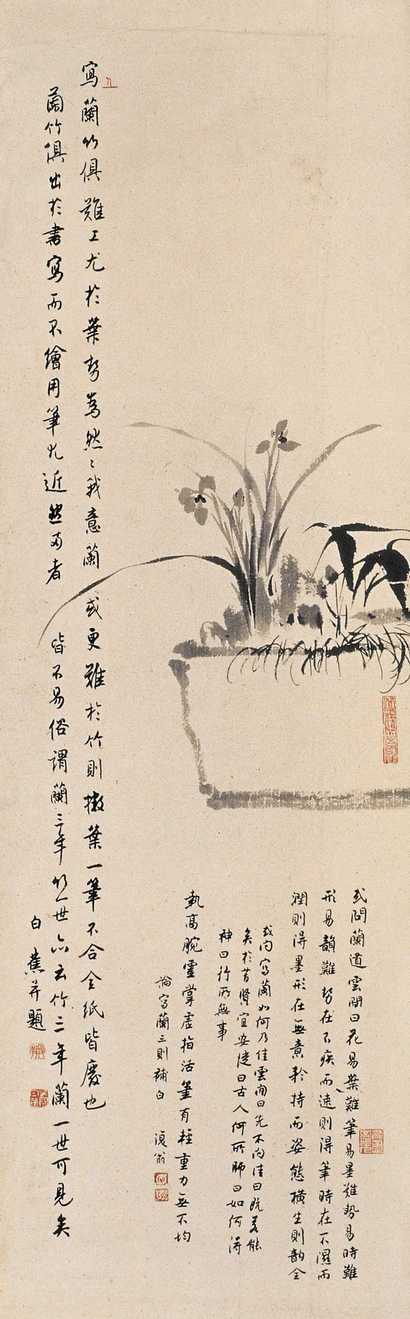 寫蘭竹俱難工尤於葉勢為然然我意蘭或更難於竹則撇葉一筆不合全紙皆廢也
蘭竹俱出於書寫而不繪用筆尤近然两者皆不易俗謂蘭三年竹一世亦云竹三年蘭一世可見矣
白蕉并題
或問蘭道雲間曰花易葉難筆易墨難勢易時難
形易韻難勢在不疾而速則得筆時在不濕而
潤則得墨形在無意矜持而姿態橫生則韻全
或問寫蘭如何乃佳雲間曰先不問佳曰既美能
矣於昔賢宜安從曰古人何所師曰如何得
神曰行所無事
執高腕靈掌虛指活筆有輕重力無不均
論寫蘭三則補白 復翁